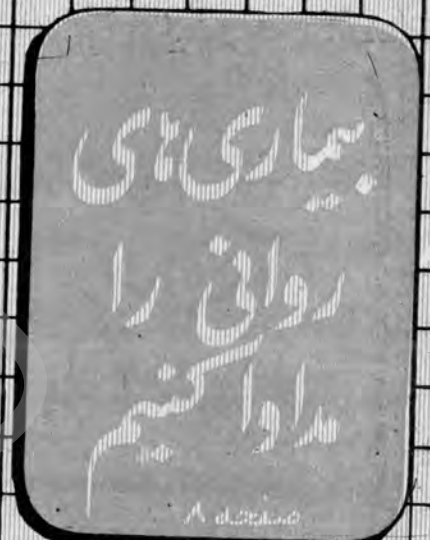 بیماری‌های
روانی را
مداوا کنیم
صفحه ۸